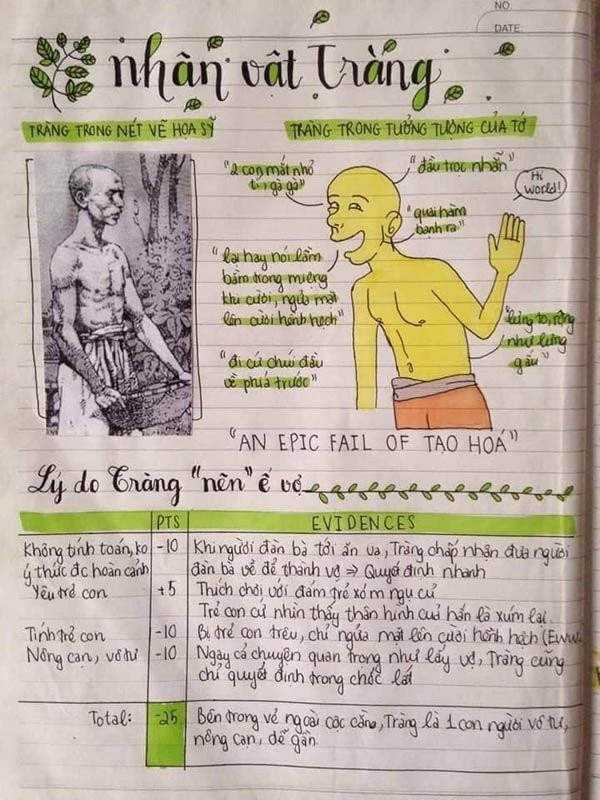 NO.
DATE:
nhân vật Tràng
TRÀNG TRONG NÉT VẼ HỌA SỸ
TRÀNG TRONG TƯỞNG TƯỢNG CỦA TỚ
"2 con mắt nhỏ
tí, gà gà"
"đầu trọc nhẵn"
Hi
world!
"quai hàm
bạnh ra"
"lại hay nói lầm
bầm trong miệng
khi cười, ngửa mặt
lên cười hềnh hệch"
"lưng to, rộng
như lưng
gấu"
"đi cứ chúi đầu
về phía trước"
"AN EPIC FAIL OF TẠO HOÁ"
Lý do Tràng "nên" ế vợ
PTS
EVIDENCES
Không tính toán, ko
ý thức đc hoàn cảnh
-10
Khi người đàn bà tới ăn vạ, Tràng chấp nhận đưa người
đàn bà về để thành vợ ⇒ Quyết định nhanh
Yêu trẻ con
+5
Thích chơi với đám trẻ xóm ngụ cư
Trẻ con cứ nhìn thấy thân hình của hắn là xúm lại.
Tính trẻ con
-10
Bị trẻ con trêu, chỉ ngửa mặt lên cười hềnh hệch (Eww
Nông cạn, vô tư
-10
Ngay cả chuyện quan trọng như lấy vợ, Tràng cũng
chỉ quyết định trong chốc lát
Total:
-25
Bên trong vẻ ngoài cộc cằn, Tràng là 1 con người vô tư,
nông cạn, dễ gần.